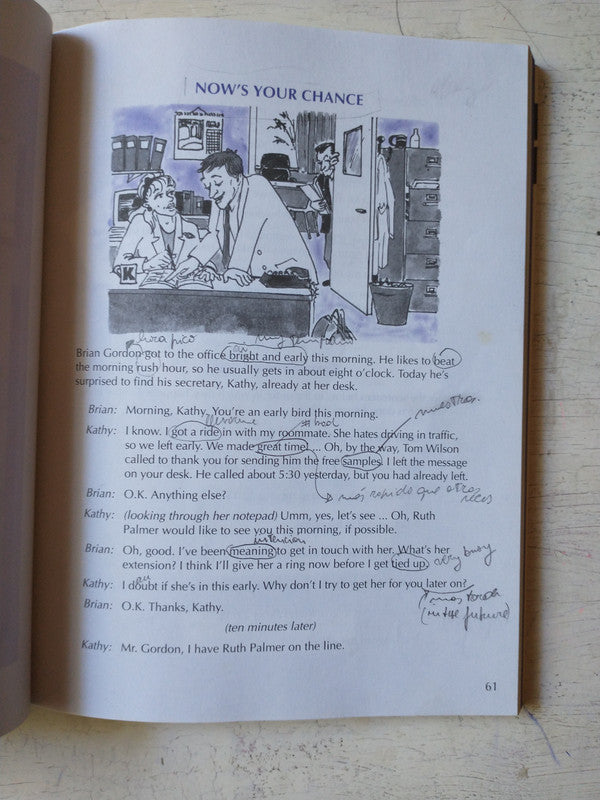 NOW'S YOUR CHANCE
K
hora pico
Brian Gordon got to the office bright and early this morning. He likes to beat
the morning rush hour, so he usually gets in about eight o'clock. Today he's
surprised to find his secretary, Kathy, already at her desk.
Brian: Morning, Kathy. You're an early bird this morning.
nuestras.
Kathy: I know. I got a ride in with my roommate. She hates driving in traffic,
so we left early. We made great time! ... Oh, by the way, Tom Wilson
called to thank you for sending him the free samples. I left the message
on your desk. He called about 5:30 yesterday, but you had already left.
mas rapido que otras
veces
Brian: O.K. Anything else?
Kathy: (looking through her notepad) Umm, yes, let's see ... Oh, Ruth
Palmer would like to see you this morning, if possible.
intention
Brian: Oh, good. I've been meaning to get in touch with her. What's her
very busy
extension? I think I'll give her a ring now before I get tied up.
Kathy: I doubt if she's in this early. Why don't I try to get her for you later on?
mas tarde
(in the future)
Brian: O.K. Thanks, Kathy.
(ten minutes later)
Kathy: Mr. Gordon, I have Ruth Palmer on the line.
61